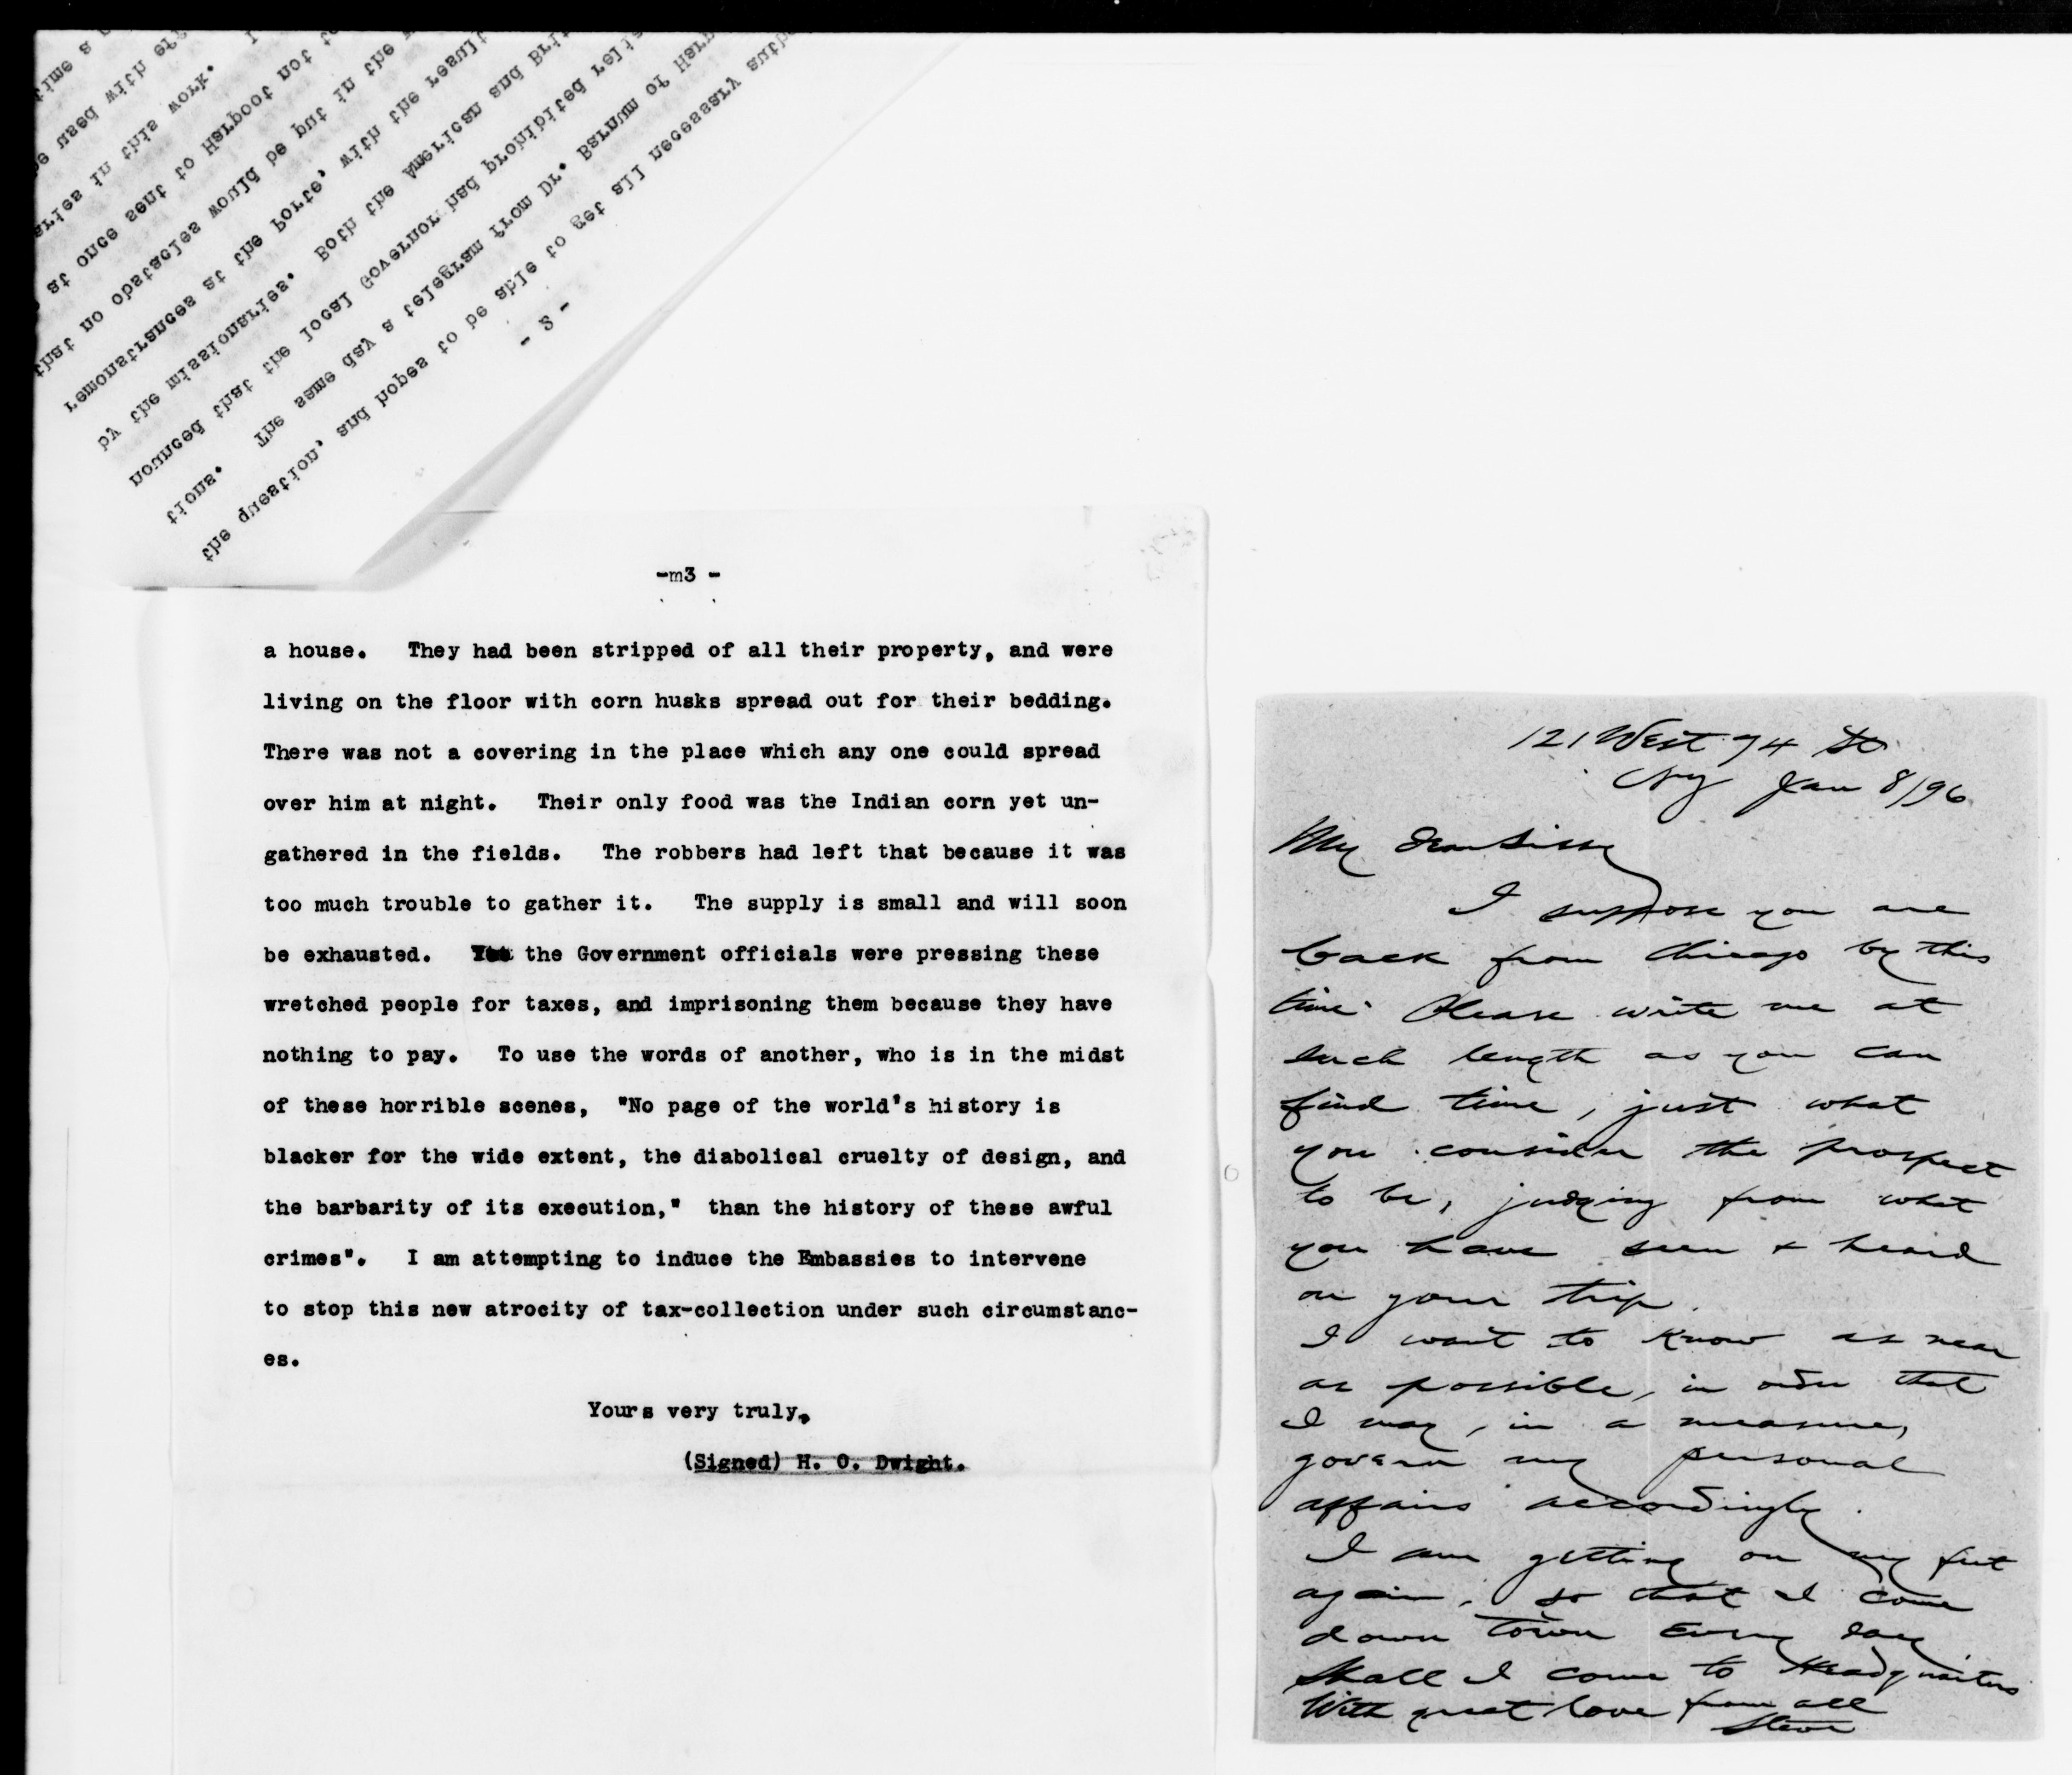 - 2 -
the question, and hopes to be able to get all necessary
tions. The same day a telegram from Dr. Barnum of
nounced that the local Governor had prohibited
by the missionaries. Both the American and
remonstrances at the Porte, with the
that no obstacles would be put in the
at once sent to Harpoot
in this work.
-m3 -
a house. They had been stripped of all their property, and were
living on the floor with corn husks spread out for their bedding.
There was not a covering in the place which any one could spread
over him at night. Their only food was the Indian corn yet un-
gathered in the fields. The robbers had left that because it was
too much trouble to gather it. The supply is small and will soon
be exhausted. Yet the Government officials were pressing these
wretched people for taxes, and imprisoning them because they have
nothing to pay. To use the words of another, who is in the midst
of these horrible scenes, "No page of the world's history is
blacker for the wide extent, the diabolical cruelty of design, and
the barbarity of its execution," than the history of these awful
crimes". I am attempting to induce the Embassies to intervene
to stop this new atrocity of tax-collection under such circumstanc-
es.
Yours very truly,
(Signed) H. O. Dwight.
121 West 74 St
NY Jan 8/96
My dear Sissy
I suppose you are
back from Chicago by this
time. Please write me at
such length as you can
find time, just what
you consider the prospect
to be, judging from what
you have seen & heard
on your trip.
I want to know as near
as possible, in order that
I may, in a measure,
govern my personal
affairs accordingly.
I am getting on my feet
again, so that I come
down town every day.
Shall I come to Headquarters
With great love from all
Steve